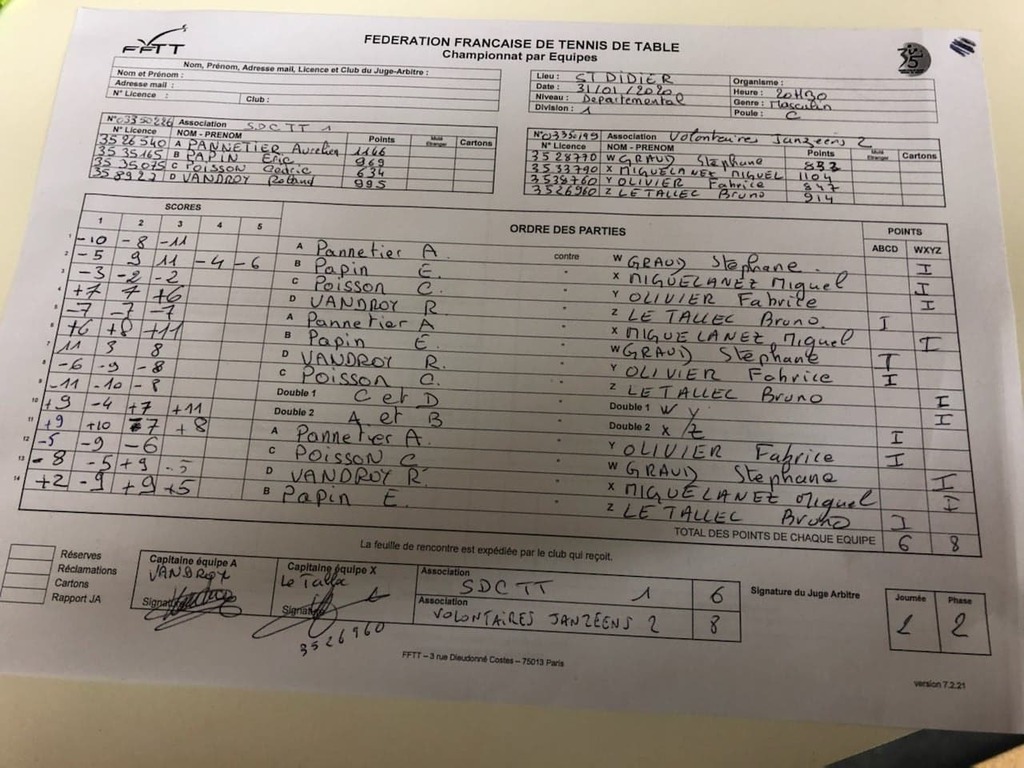 FFTT
FEDERATION FRANCAISE DE TENNIS DE TABLE
Championnat par Equipes
Nom, Prénom, Adresse mail, Licence et Club du Juge-Arbitre :
Nom et Prénom :
Adresse mail :
N° Licence : Club :
Lieu : ST DIDIER Organisme :
Date : 31/01/2020 Heure : 20H30
Niveau : Departemental Genre : Masculin
Division : 1 Poule : C
N°03350226 Association SDCTT 1
N° Licence NOM - PRENOM Points Cartons
3526540 A PANNETIER Aurelien 1166
3535165 B PAPIN Eric 969
3535075 C POISSON Cedric 634
358922 D VANDROY Rolland 995
N°03350199 Association Volontaires Janzeens 2
N° Licence NOM - PRENOM Points Cartons
3528770 W GRAUD Stephane
3533790 X MIGUELANEZ MIGUEL 1104
3538760 Y OLIVIER Fabrice 847
3526960 Z LE TALLEC Bruno 914
SCORES ORDRE DES PARTIES POINTS
1 2 3 4 5 ABCD WXYZ
1 -10 -8 -11 A Pannetier A. contre W GRAUD Stephane. I
2 -5 9 11 -4 -6 B Papin E. " X MIGUELANEZ Miguel I
3 -3 -2 -2 C Poisson C. " Y OLIVIER Fabrice I
4 +7 7 +6 D VANDROY R. " Z LE TALLEC Bruno. I
5 -7 -7 -7 A Pannetier A " X MIGUELANEZ Miguel I
6 +6 +8 +11 B Papin E. " W GRAUD Stephane I
7 11 3 8 D VANDROY R. " Y OLIVIER Fabrice I
8 -6 -9 -8 C Poisson C. " Z LE TALLEC Bruno I
9 -11 -10 -8 Double 1 C et D " Double 1 W Y I
10 +9 -4 +7 +11 Double 2 A et B " Double 2 X/Z I
11 +9 +10 7 +8 A Pannetier A. " Y OLIVIER Fabrice I
12 -5 -9 -6 C Poisson C " W GRAUD Stephane I
13 -8 -5 +9 -5 D VANDROY R. " X MIGUELANEZ Miguel I
14 +2 -9 +9 +5 B Papin E. " Z LE TALLEC Bruno I
TOTAL DES POINTS DE CHAQUE EQUIPE 6 8
La feuille de rencontre est expédiée par le club qui reçoit.
Réserves
Réclamations
Cartons
Rapport JA
Capitaine équipe A
VANDROY
Signature
Capitaine équipe X
Le Talle
Signature
3526960
Association
SDCTT 1 6
Association
VOLONTAIRES JANZEENS 2 8
Signature du Juge Arbitre
Journée Phase
1 2
FFTT – 3 rue Dieudonné Costes – 75013 Paris
version 7.2.21